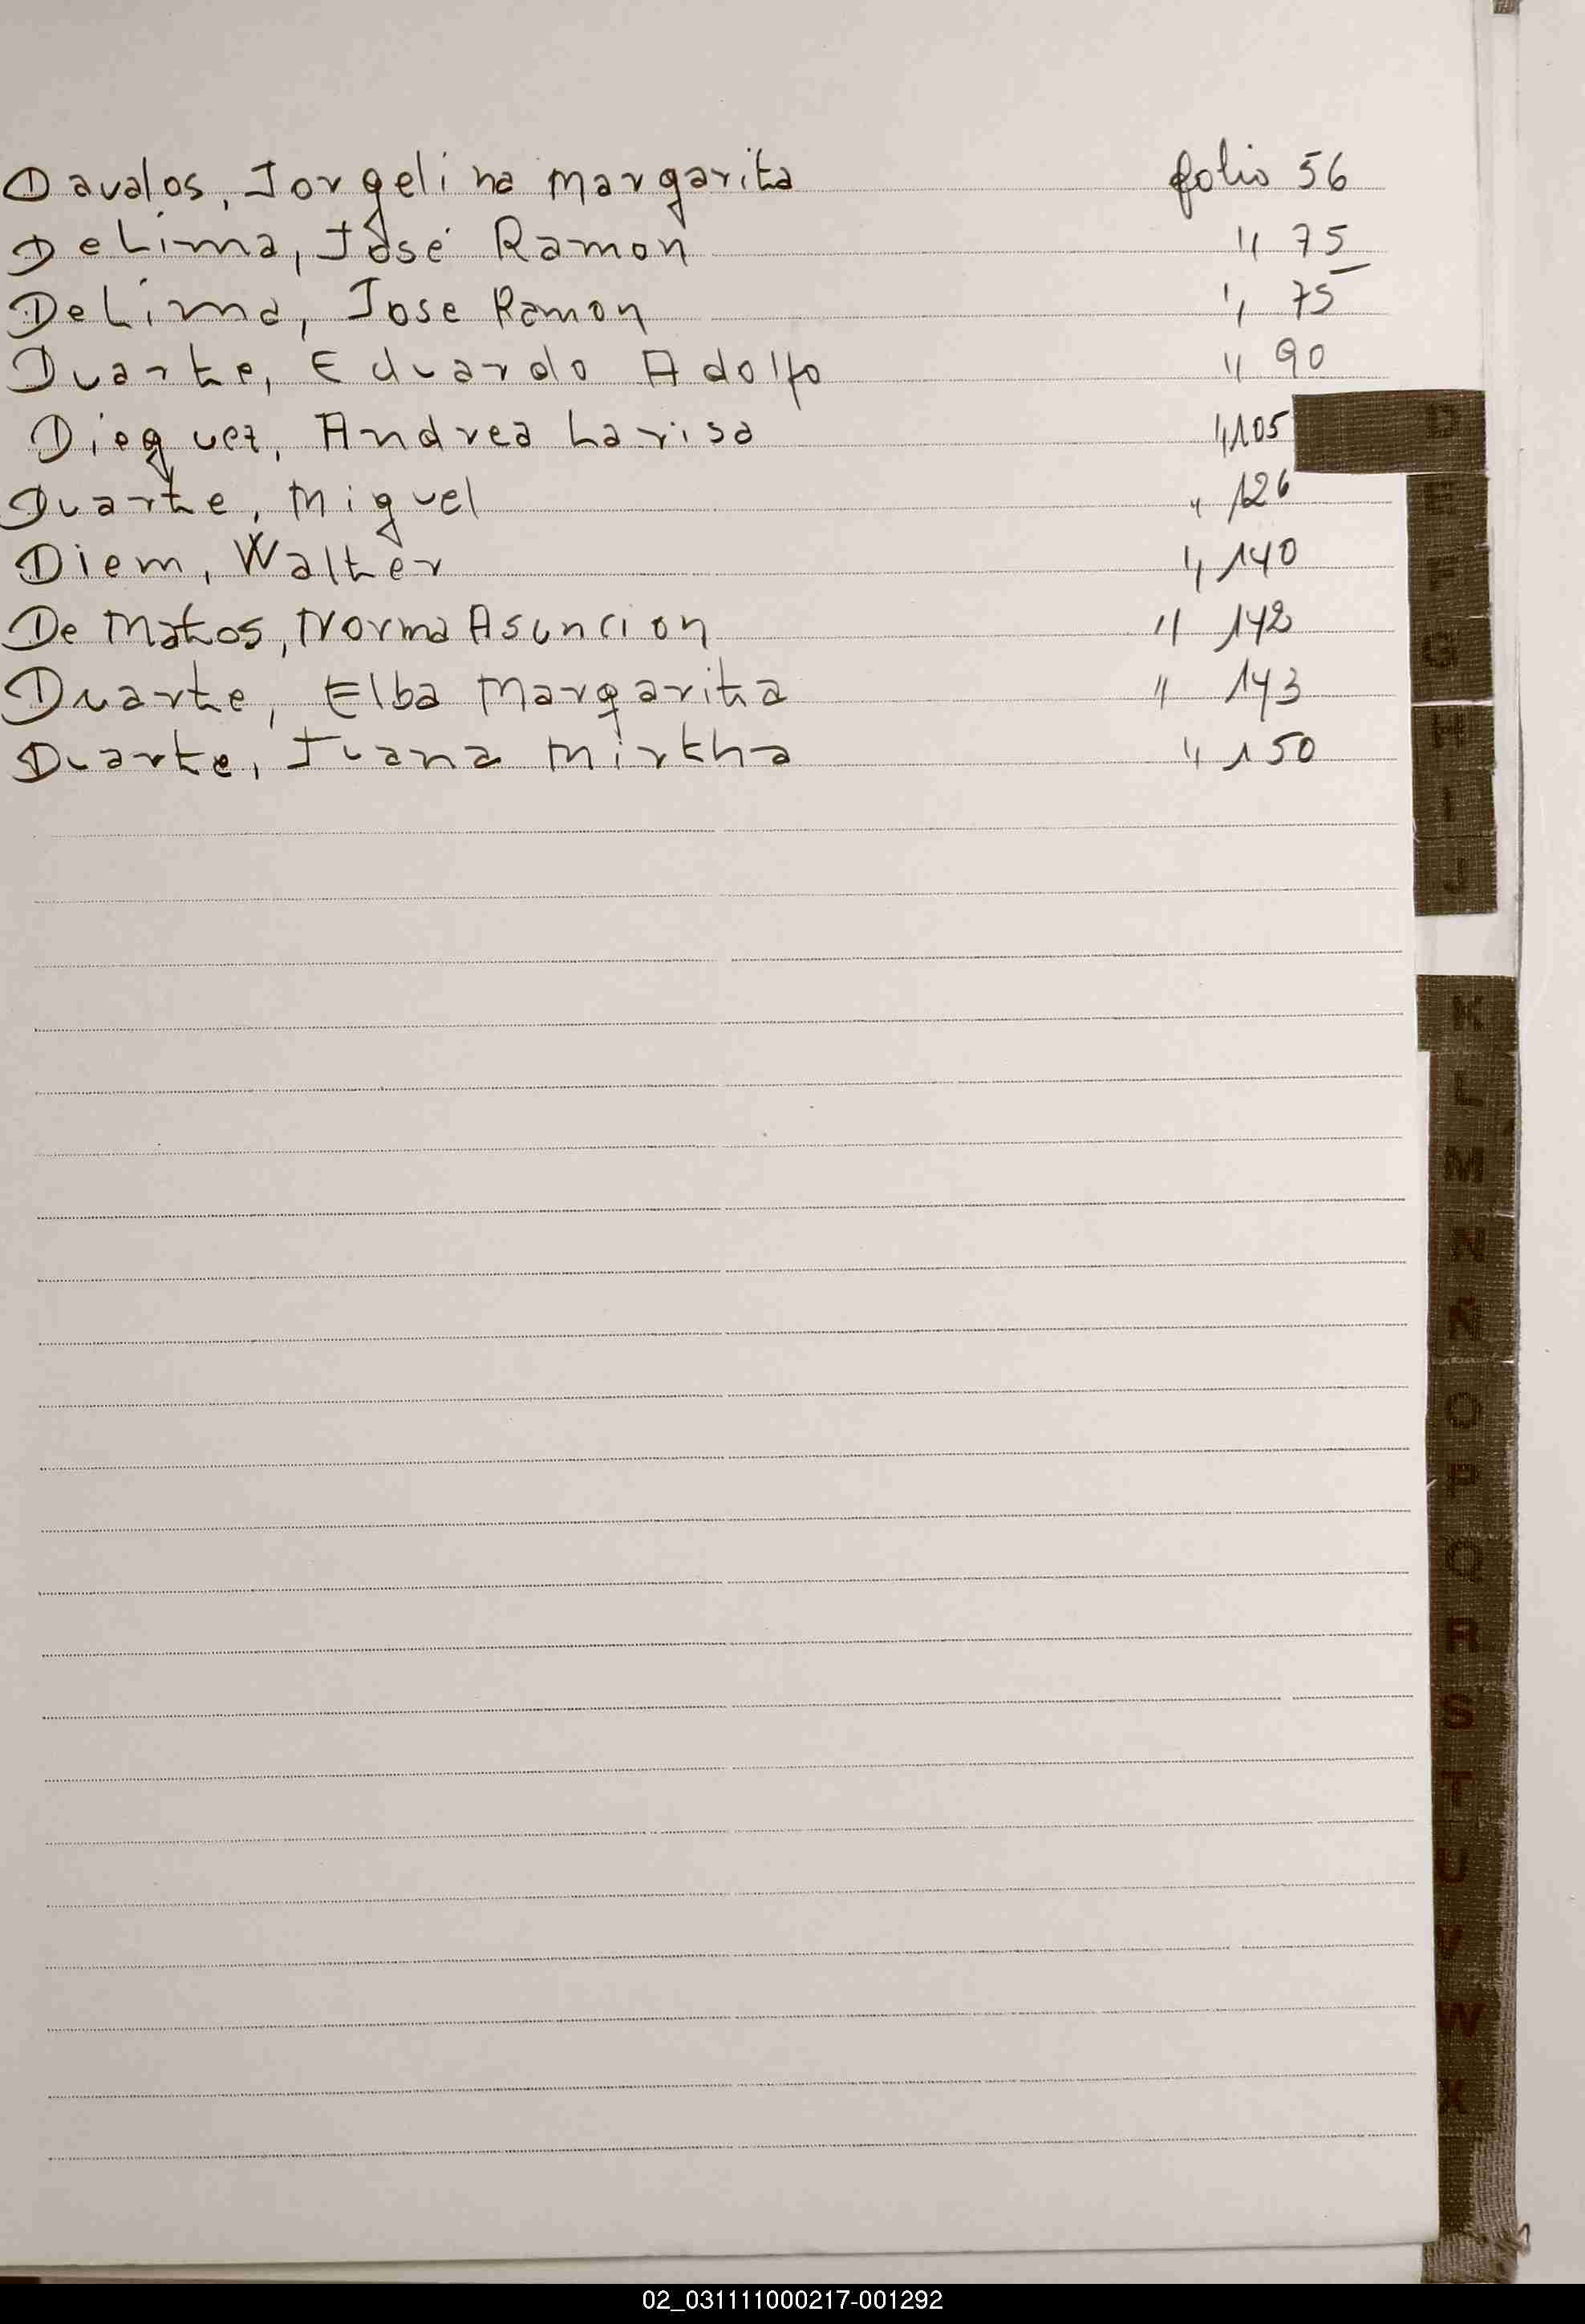 Davalos, Jorgelina Margarita folio 56
De Lima, José Ramon " 75
De Lima, Jose Ramon " 75
Duarte, Eduardo Adolfo " 90
Dieguez, Andrea Larisa " 105
Duarte, Miguel " 126
Diem, Walter " 140
De Matos, Norma Asuncion " 142
Duarte, Elba Margarita " 143
Duarte, Juana Mirtha " 150
D
E
F
G
H
I
J
K
L
M
N
Ñ
O
P
Q
R
S
T
U
V
W
X
02_031111000217-001292